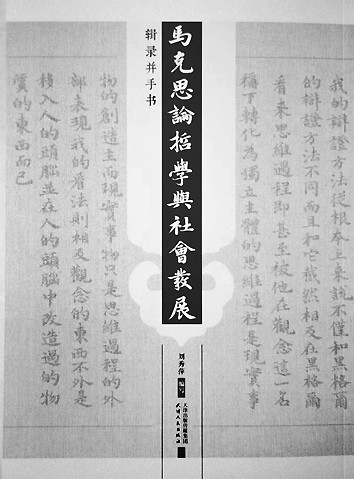 我的辯證方法從根本上來說不僅和黑格爾
的辯證方法不同而且和它截然相反在黑格爾
看來思維過程即甚至被他在觀念這一名
稱下轉化為獨立主體的思維過程是現實事
馬克思論哲學與社會發展
辑录并手书
刘秀萍 编写
天津出版传媒集团
天津人民出版社
物的創造主而現實事物只是思維過程的外
部表現我的看法則相反觀念的東西不外是
移入人的頭腦並在人的頭腦中改造過的物
質的東西而已